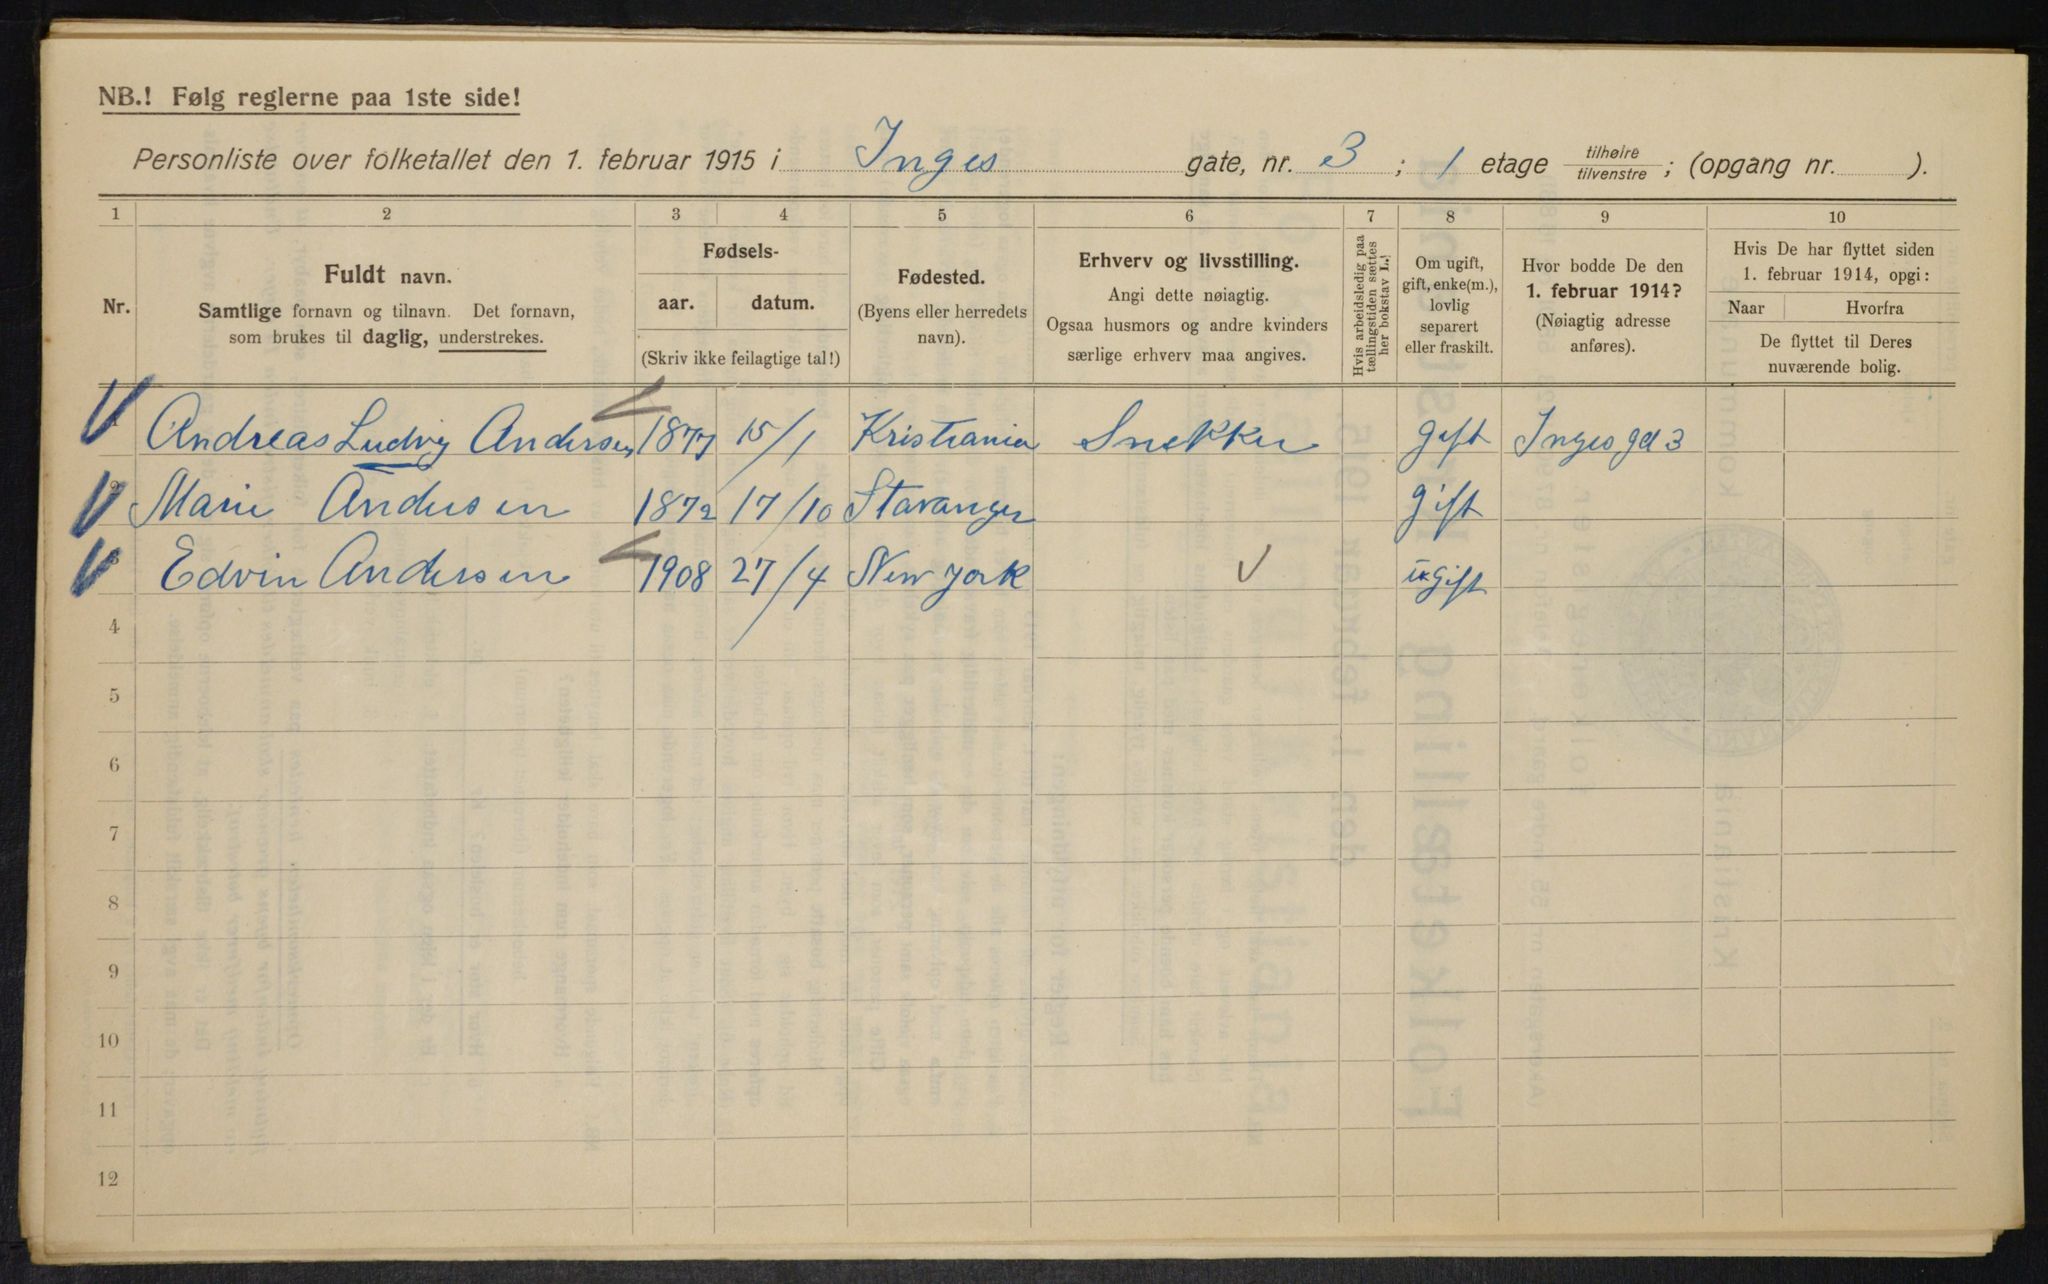 NB.! Følg reglerne paa 1ste side!
Personliste over folketallet den 1. februar 1915 i Inges gate, nr. 3 ; 1 etage tilhøire tilvenstre ; (opgang nr. ).
1 2 3 4 5 6 7 8 9 10
Nr.
Fuldt navn.
Samtlige fornavn og tilnavn. Det fornavn,
som brukes til daglig, understrekes.
Fødsels-
aar. datum.
(Skriv ikke feilagtige tal!)
Fødested.
(Byens eller herredets
navn).
Erhverv og livsstilling.
Angi dette nøiagtig.
Ogsaa husmors og andre kvinders
særlige erhverv maa angives.
Hvis arbeidsledig paa
tællingstiden sættes
her bokstav L.!
Om ugift,
gift, enke(m.),
lovlig
separert
eller fraskilt.
Hvor bodde De den
1. februar 1914?
(Nøiagtig adresse
anføres).
Hvis De har flyttet siden
1. februar 1914, opgi:
Naar Hvorfra
De flyttet til Deres
nuværende bolig.
Andreas Ludvig Andersen 1877 15/1 Kristiania Snekker gift Inges gd 3
2 Marie Andersen 1872 17/10 Stavanger gift
3 Edvin Andersen 1908 27/4 New york ugift
4
5
6
7
8
9
10
11
12